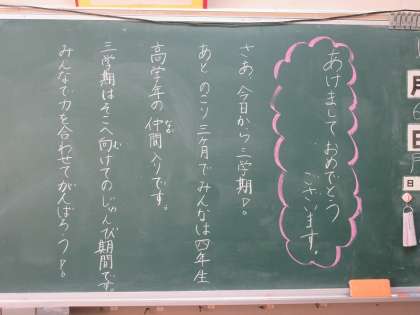 あけましておめでとう
ございます。
さあ、今日から三学期!!
あとのこり三ヶ月でみんなは四年生
高学年の仲間入りです。
なか
三学期はそこへ向けてのじゅんび期間です。
む
みんなで力を合わせてがんばろう!!
月
日
日